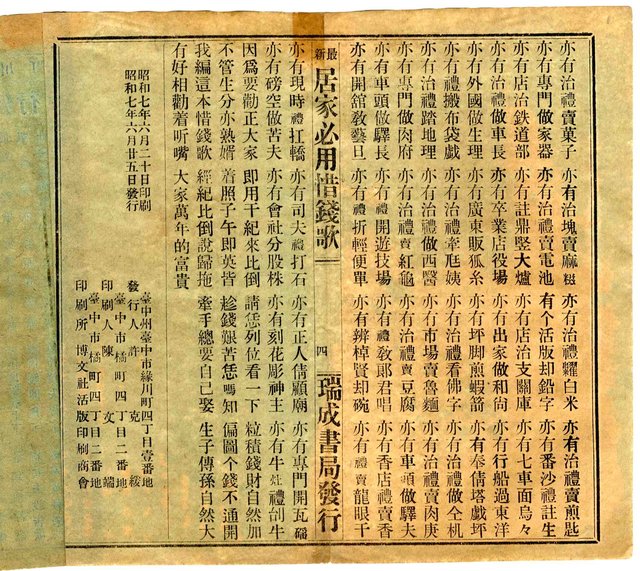 亦有治禮賣菓子 亦有治塊賣麻糍 亦有治禮糶白米 亦有治禮賣煎匙
亦有專門做家器 亦有治禮賣電池 有个活版却鉛字 亦有番沙禮註生
亦有店治鉄道部 亦有註鼎竪大爐 亦有店治支關庫 亦有七車面烏々
亦有治禮做車長 亦有卒業店役場 亦有出家做和尚 亦有行船過東洋
亦有外國做生理 亦有廣東販狐糸 亦有坪脚煎蝦箭 亦有奉倩塔戲坪
亦有治禮搬布袋戲 亦有治禮牽尫姨 亦有治禮看佛字 亦有治禮做仝机
亦有治禮踏地理 亦有治禮做西醫 亦有市場賣魯麵 亦有治禮賣肉庚
亦有專門做肉府 亦有治禮賣紅龜 亦有治禮賣豆腐 亦有車頭做驛夫
亦有車頭做驛長 亦有禮開遊技場 亦有禮敎郎君唱 亦有香店禮賣香
亦有開舘敎藝旦 亦有禮折輕便單 亦有辨棹賢却碗 亦有禮賣龍眼干
最新 居家必用惜錢歌 四 瑞成書局發行
亦有現時禮扛轎 亦有司夫禮打石 亦有正人倩顧廟 亦有專門開瓦磘
亦有磅空做苦夫 亦有會社分股株 亦有刻花彫神主 亦有牛灶禮刣牛
因爲要勸正大家 即用干紀來比倒 請恁列位看一下 粒積錢財自然加
不管生分亦熟婿 着照子午即英皆 趁錢艱苦恁嗎知 偏圖个錢不通開
我編這本惜錢歌 經紀比倒說歸拖 牽手總要自己娶 生子傳孫自然大
有好相勸着听嘴 大家萬年的富貴
昭和七年六月二十日印刷
昭和七年六月廿五日發行
臺中州臺中市綠川町四丁目壹番地
發行人 許克綏
臺中市橘町四丁目二番地
印刷人 陳文端
臺中市橘町四丁目二番地
印刷所 博文社活版印刷商會